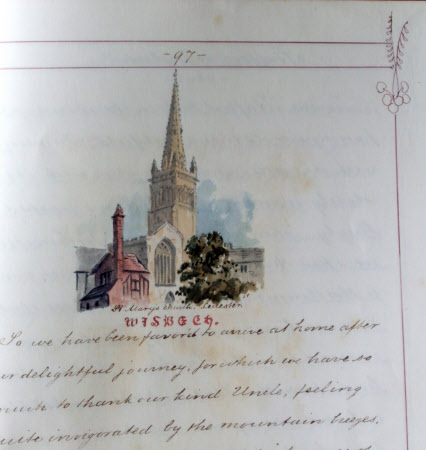 -97-
St Mary's Church. Leicester
WISBECH.
So we have been favord to arrive at home after
our delightful journey, for which we have so
much to thank our kind Uncle, feeling
quite invigorated by the mountain breezes,